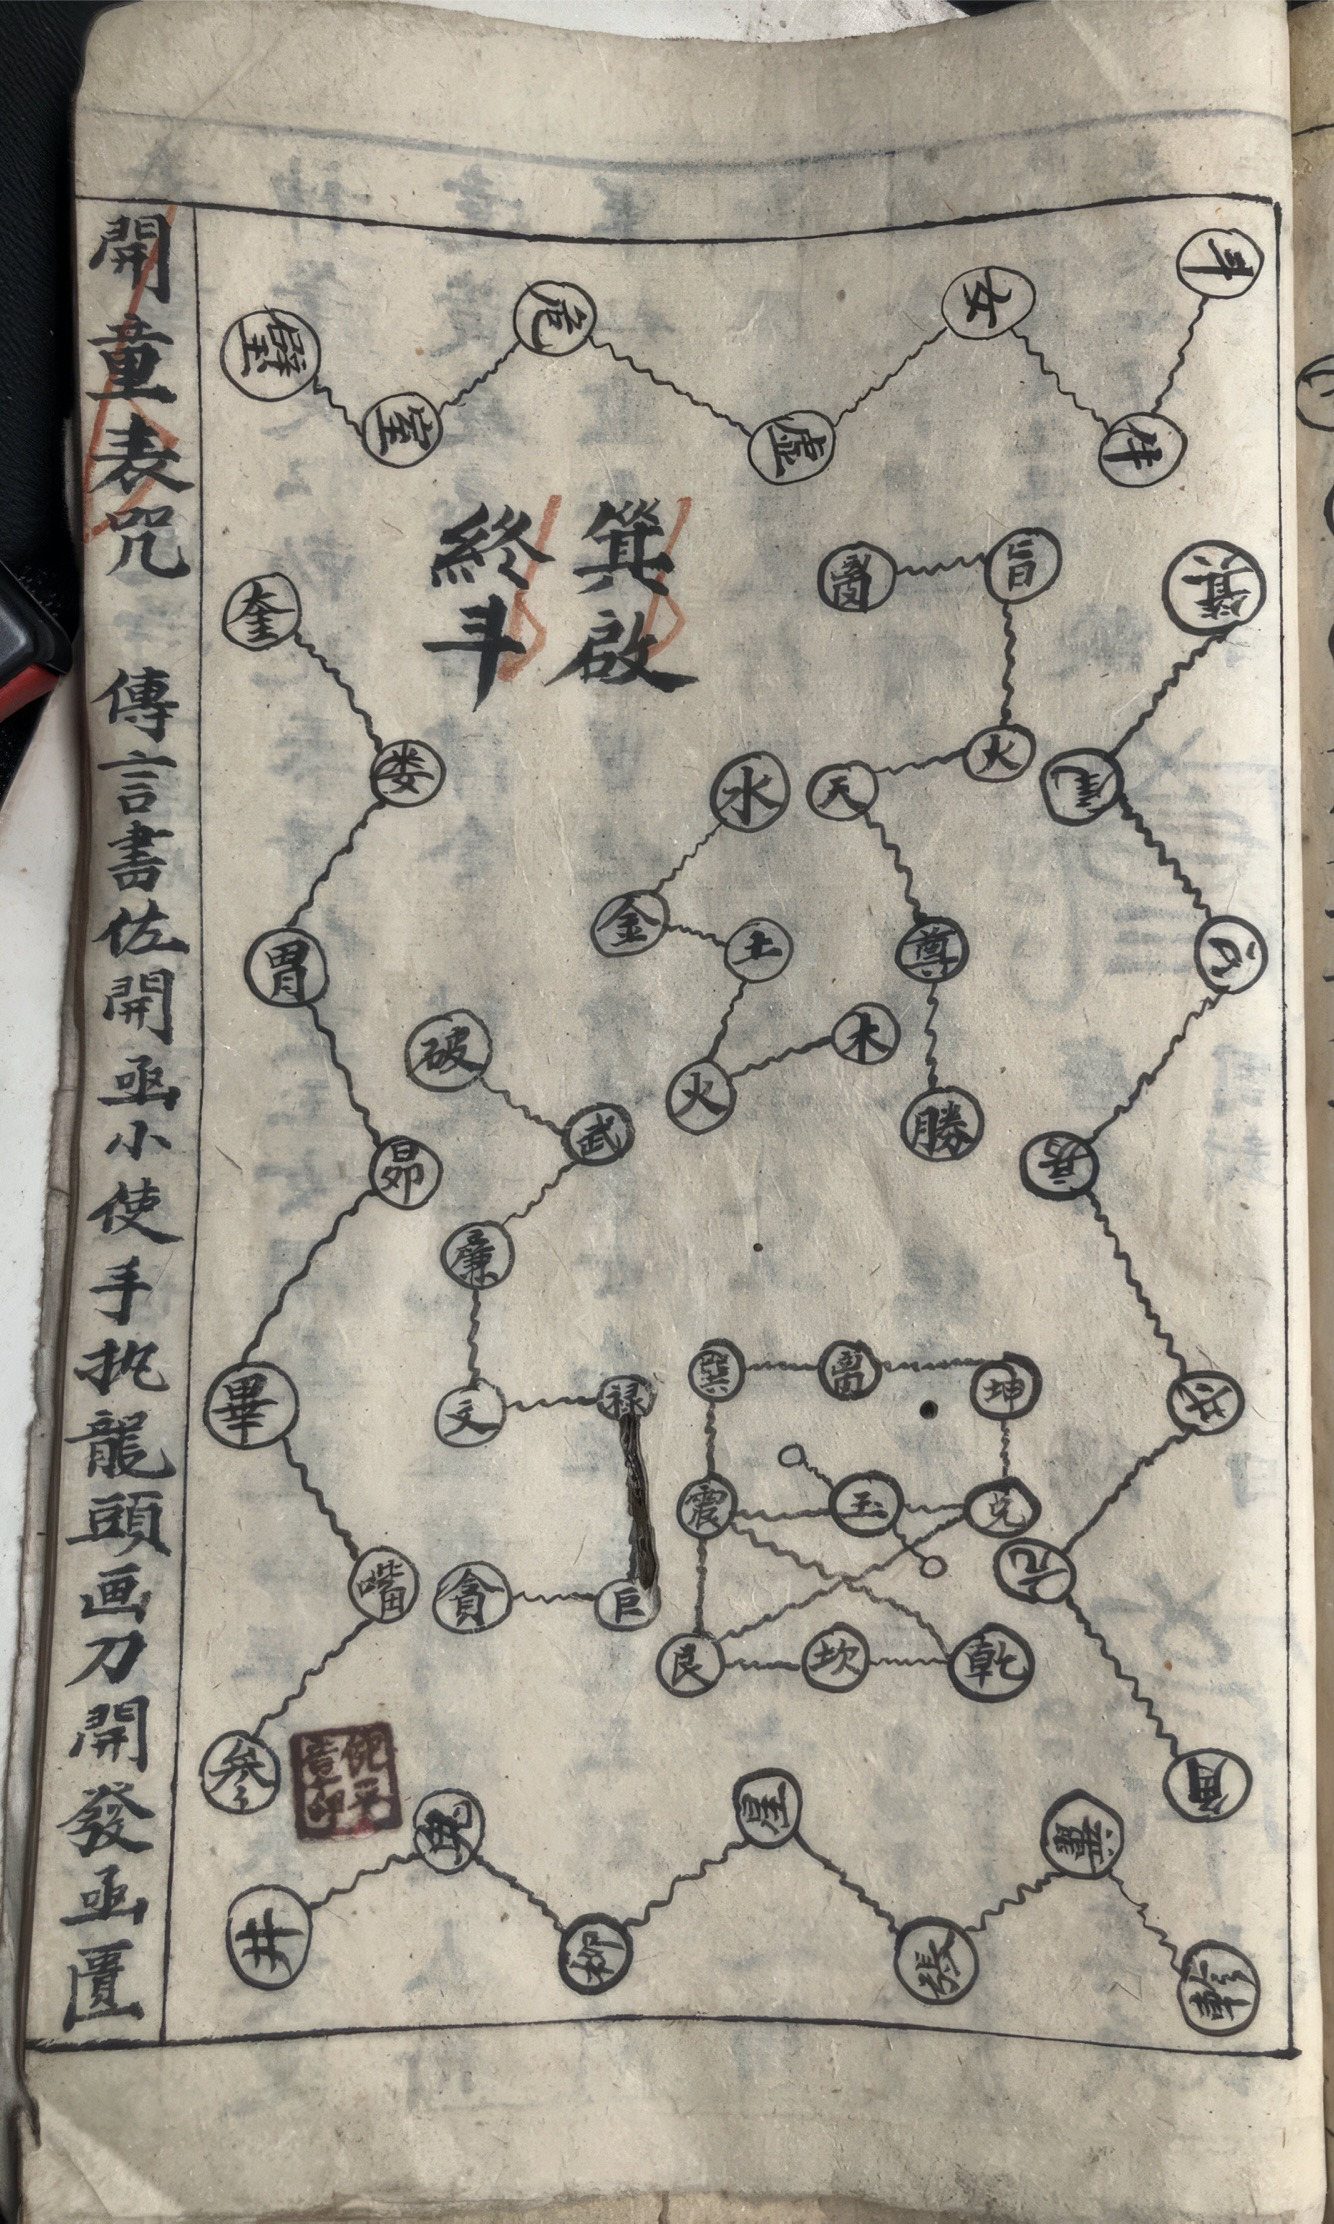 斗
牛
女
虛
危
室
壁
箕
尾
心
房
氐
亢
角
箕啟
終斗
奎
婁
胃
昴
畢
嘴
参
火
天
尊
勝
水
金
土
火
木
破
武
廉
文
禄
巨
貪
巽
離
坤
震
玉
兌
艮
坎
乾
井
鬼
柳
星
張
翼
軫
開童表咒 傳言書佐開函小使手执龍頭画刀開發函匱